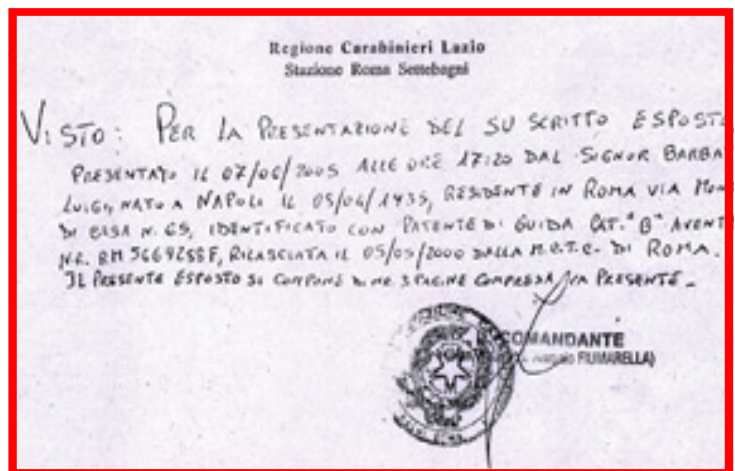 Regione Carabinieri Lazio
Stazione Roma Settebagni
VISTO: PER LA PRESENTAZIONE DEL SU SCRITTO ESPOSTO
PRESENTATO IL 07/06/2005 ALLE ORE 17:20 DAL SIGNOR BARBA
LUIGI, NATO A NAPOLI IL 05/06/1935, RESIDENTE IN ROMA VIA
DI CASA N. 65, IDENTIFICATO CON PATENTE DI GUIDA CAT. "B" AVENT
NR. RM 5669288F, RILASCIATA IL 05/05/2000 DALLA M.C.T.C. DI ROMA.
IL PRESENTE ESPOSTO SI COMPONE DI NR. 3 PAGINE COMPRESA LA PRESENTE.
COMANDANTE
FIUMARELLA)